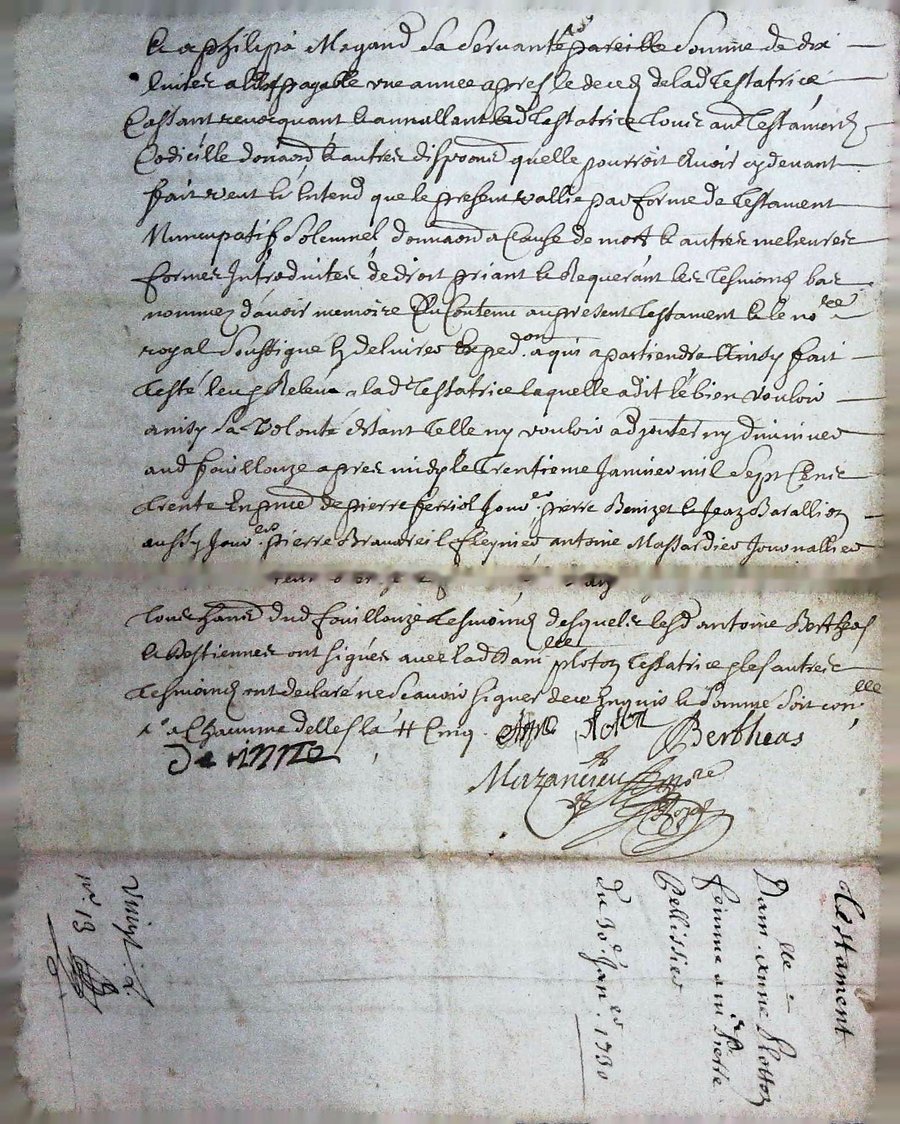 Et a philipa Magand sa Servante pareille Somme de dix
livres payable une annee apres le deced de lad Testatrice
Cassant revocquant et annullant lad Testatrice Tous aud Testamend
Codicille donaond et autres dispoond quelle pourroit avoir cy devant
fait veut et Entend que le present vallie par forme de Testament
Nuncupatif Solemnel donnaond a Cause de mort et autres melieures
formes Introduites de droit priant et Requerant les Tesmoins bas
nommez d'avoir memoire du Contenu au present Testament et le nore
royal Soussigne den delivrer Exped.on a qui apartiendra Ainsy fait
Testé leu a lad Testatrice laquelle a dit le bien vouloir
ainsy Sa Volonté Estant Telle ny vouloir adjouter ny diminuer
aud fouillouze apres midy le Trentieme Janvier mil Sept Cens
trente En pnce de pierre ferriol Jour.er pierre Benizet et Jean Barallion
aussy Jour.er pierre antoine Massardier Journallier
Tous dud fouillouze Tesmoins desquels lesd antoine Bertheas
et Bestiennes ont signés avec lad Damlle ploton Testatrice et les autres
Tesmoins ont declaré ne Scavoir signer de ce Enquis et Somme Soit con.lle
Cinq
Bertheas
Mazancieu
Testament
Damlle Anne Plotton
femme a mr Pierre
Pellissier
du 30e Jan.er 1730
no 13